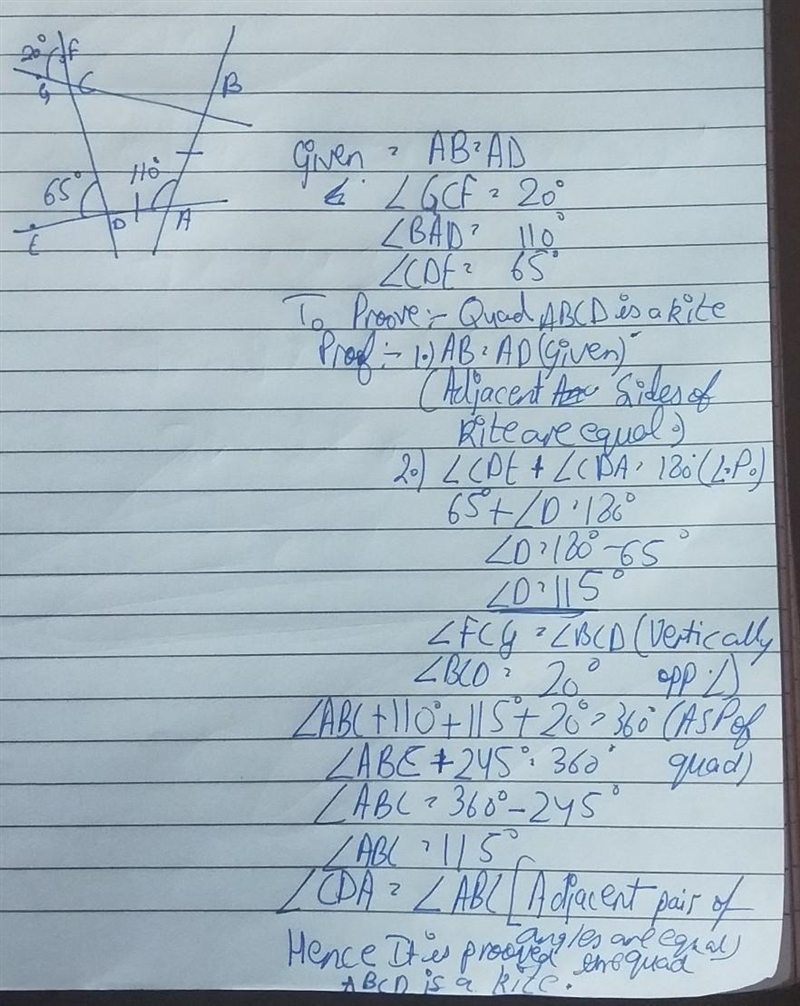 20° F
G C B
65° 110°
E D A
Given = AB = AD
& ∠GCF = 20°
∠BAD = 110°
∠CDE = 65°
To Proove:- Quad ABCD is a kite
Proof:- 1.) AB = AD (Given)
(Adjacent Sides of
Kite are equal.)
2.) ∠CDE + ∠CDA = 180° (L.P.)
65° + ∠D = 180°
∠D = 180° - 65°
∠D = 115°
∠FCG = ∠BCD (Vertically
∠BCD = 20° opp ∠)
∠ABC + 110° + 115° + 20° = 360° (ASP of
∠ABE + 245° = 360° quad)
∠ABC = 360° - 245°
∠ABC = 115°
∠CDA = ∠ABC [Adjacent pair of
angles are equal)
Hence It is prooved quad
ABCD is a kite.